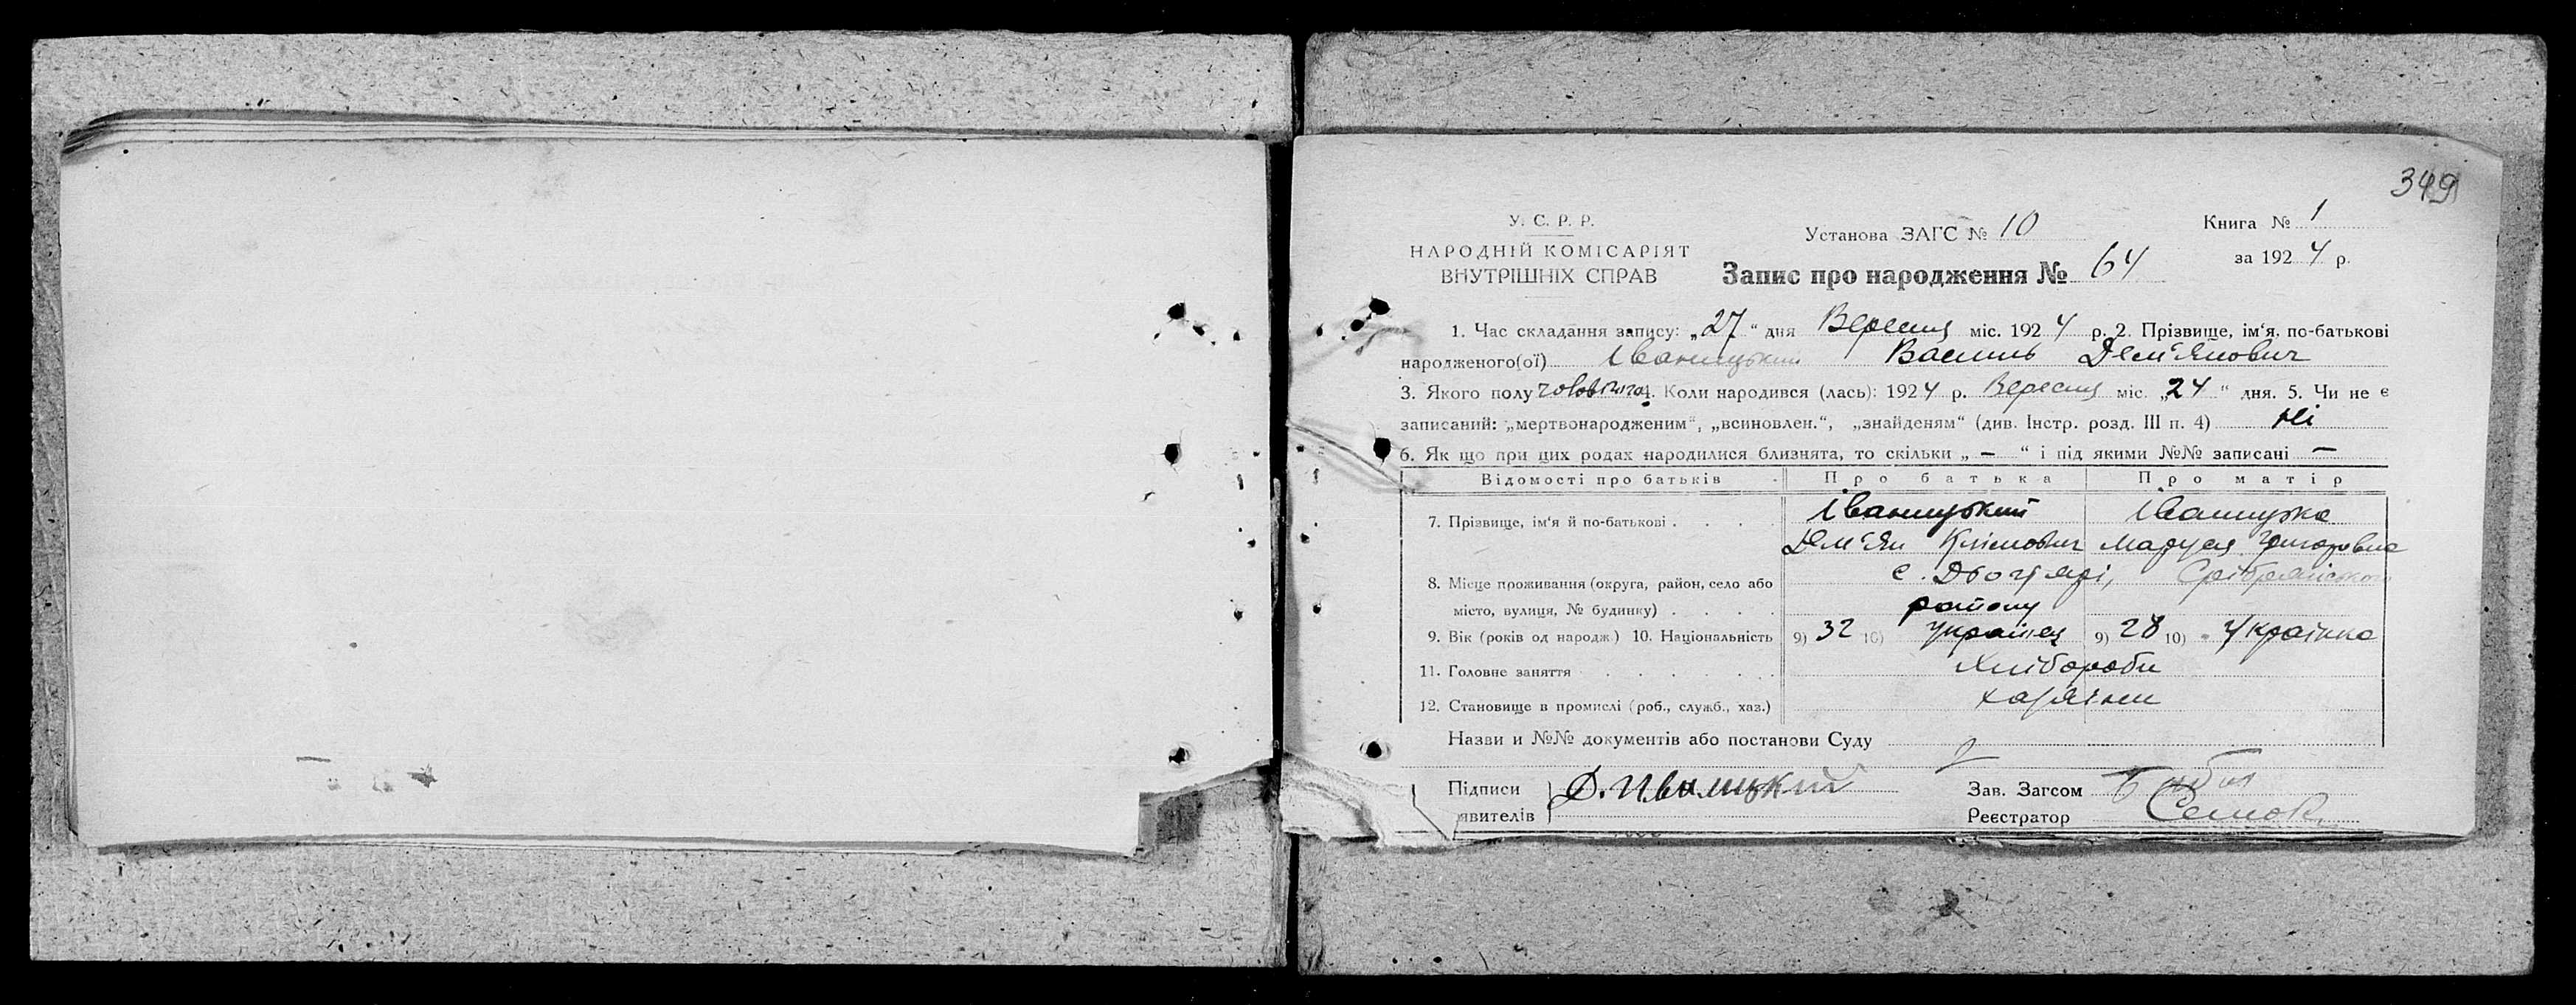 349
У. С. Р. Р.
НАРОДНІЙ КОМІСАРІЯТ
ВНУТРІШНІХ СПРАВ
Установа ЗАГС № 10
Книга № 1
за 1924 р.
Запис про народження № 64
1. Час складання запису: „27“ дня Вересня міс. 1924 р. 2. Прізвище, ім‘я. по-батькові
народженого(ої) Іваницький Василь Дем‘янович
3. Якого полу чоловічого 4. Коли народився (лась): 1924 р. Вересня міс. „24“ дня. 5. Чи не є
записаний: „мертвонародженим“, „всиновлен.“, „знайденям“ (див. Інстр. розд. III п. 4) Ні
6. Як що при цих родах народилися близнята, то скільки „ — “ і під якими №№ записані —
Відомості про батьків Про батька Про матір
7. Прізвище, ім‘я й по-батькові . . . . Іваницький Іваницька
Дем‘ян Клімович Маруся Григоровна
8. Місце проживання (округа, район, село або с. Дьогтярі, Срібрянського
місто, вулиця, № будинку) . . . . району
9. Вік (років од народж) 10. Національність 9) 32 10) Українец 9) 28 10) Українка
11. Головне заняття . . . . . . Хлібороби
12. Становище в промислі (роб., служб., хаз.) хазяіни
Назви и №№ документів або постанови Суду
Підписи Д. Иваницкий Зав. Загсом
явителів Реєстратор